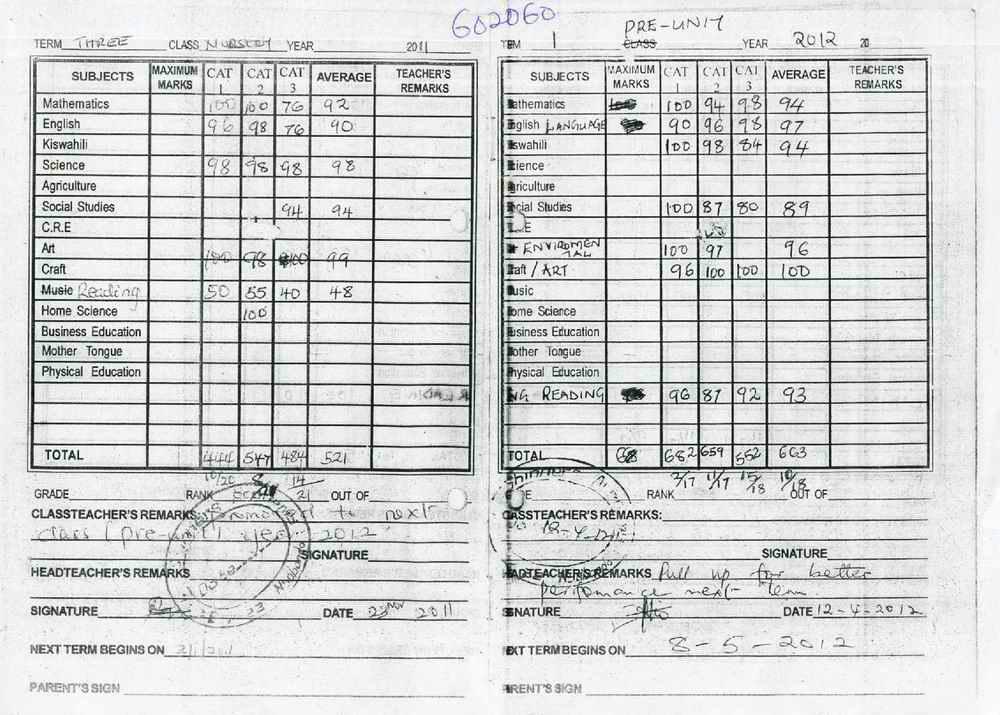 602060
TERM THREE CLASS NURSERY YEAR 2011
SUBJECTS MAXIMUM MARKS CAT 1 CAT 2 CAT 3 AVERAGE TEACHER'S REMARKS
Mathematics 100 100 76 92
English 96 98 76 90
Kiswahili
Science 98 98 98 98
Agriculture
Social Studies 94 94
C.R.E
Art 100 98 100 99
Craft
Music Reading 50 55 40 48
Home Science 100
Business Education
Mother Tongue
Physical Education
TOTAL 444 547 484 521
GRADE RANK 21 OUT OF
CLASSTEACHER'S REMARKS: Promoted to next
class (pre-unit) year 2012
SIGNATURE
HEADTEACHER'S REMARKS
SIGNATURE DATE 23 Nov 2011
NEXT TERM BEGINS ON
PARENT'S SIGN
PRE-UNIT
TERM 1 CLASS YEAR 2012 20
SUBJECTS MAXIMUM MARKS CAT 1 CAT 2 CAT 3 AVERAGE TEACHER'S REMARKS
Mathematics 100 94 98 94
English LANGUAGE 90 96 98 97
Kiswahili 100 98 84 94
Science
Agriculture
Social Studies 100 87 80 89
ENVIROMENTAL 100 97 96
Craft / ART 96 100 100 100
Music
Home Science
Business Education
Mother Tongue
Physical Education
NG READING 96 87 92 93
TOTAL 68 682 659 552 663
RANK 2/17 1/17 15/18 10/18 OUT OF
CLASSTEACHER'S REMARKS:
12-4-
SIGNATURE
HEADTEACHER'S REMARKS Pull up for better
perfomance next term
SIGNATURE DATE 12-4-2012
NEXT TERM BEGINS ON 8-5-2012
PARENT'S SIGN